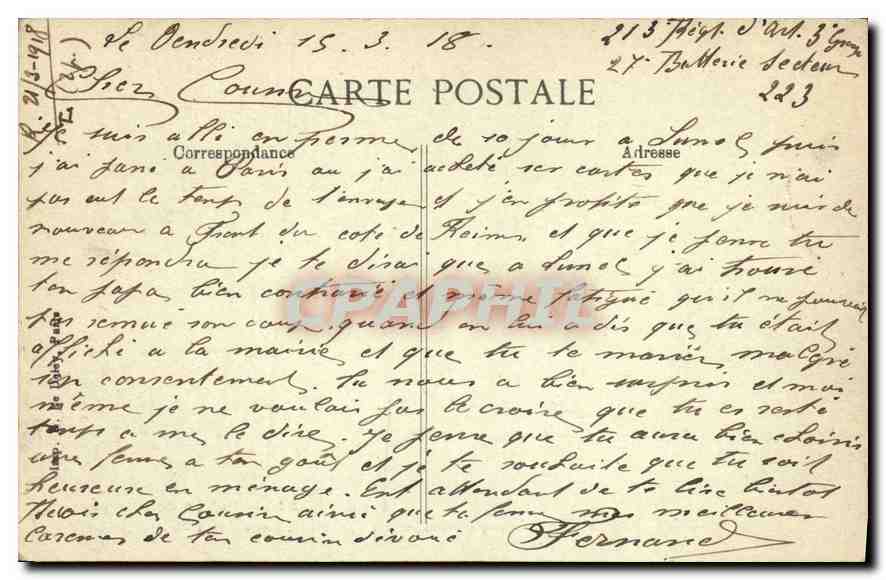 Le Vendredi 15.3.18.
213 Régt. d'Art. 3e Group
27e Batterie Secteur
223
R 21/3-1918
Cher Cousin
CARTE POSTALE
Correspondance
Adresse
Je suis alli en perme de 10 jour a Lunel puis
j'ai passé a Paris ou j'ai acheté ses cartes que je n'ai
pas eut le temps de l'envoyer et j'en profite que je suis de
nouveau a Front du coté de Reims et que je pense tu
me répondra je te dirai que a Lunel j'ai trouvé
ton papa bien contrarié et même fatigué qu'il ne pouvait
pas remué son corp quand on lui a dis que tu était
affiché a la mairie et que tu te mariér malgré
son consentement. Tu nous a bien surpris et moi
même je ne voulais pas le croire que tu es resté
temps a me le dire. Je pense que tu aura bien choisis
une femme a ton goût et je te souhaite que tu soit
heureuse en ménage. Ent attendant de te lire bientot
cher Cousin ainsi que ta femme mes meilleures
caresses de ton cousin dévoué Fernand
Imp. Paris
CPAPHIL